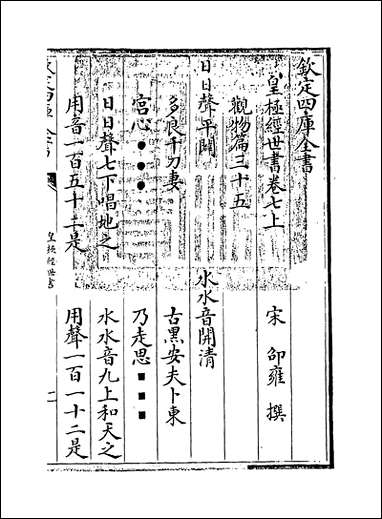 欽定四庫全書
皇極經世書卷七上　宋　邵雍　撰
觀物篇三十五
日日聲平闢　水水音開清
多良千刀妻　古黑安夫卜東
宮心●●●　乃走思■■■
日日聲七下唱地之　水水音九上和天之
用音一百五十二是　用聲一百一十二是
皇極經世書